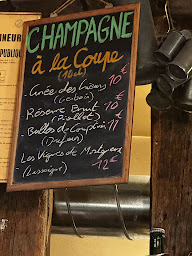 NEUR
PUBLIQUE
CHAMPAGNE
à la Coupe
(10cl)
Cuvée des Lièvres 10€
Réserve Brut 10€
(Piollot)
- Bulles de Comptoir 11€
(Dufour)
- Les Vignes de Montgueux
(Lassaigne) 12€